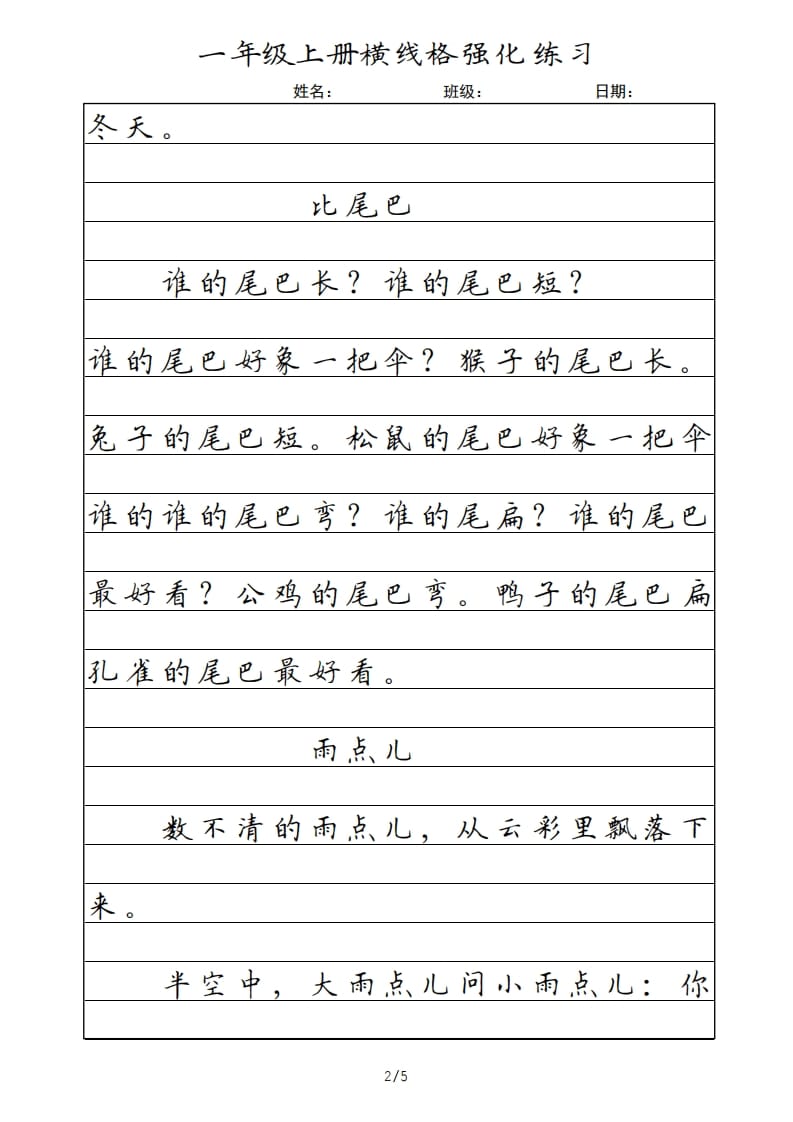 一年级上册横线格强化练习
姓名: 班级: 日期:
冬天。
比尾巴
谁的尾巴长？谁的尾巴短？
谁的尾巴好象一把伞？猴子的尾巴长。
兔子的尾巴短。松鼠的尾巴好象一把伞
谁的谁的尾巴弯？谁的尾扁？谁的尾巴
最好看？公鸡的尾巴弯。鸭子的尾巴扁
孔雀的尾巴最好看。
雨点儿
数不清的雨点儿，从云彩里飘落下
来。
半空中，大雨点儿问小雨点儿：你
2/5